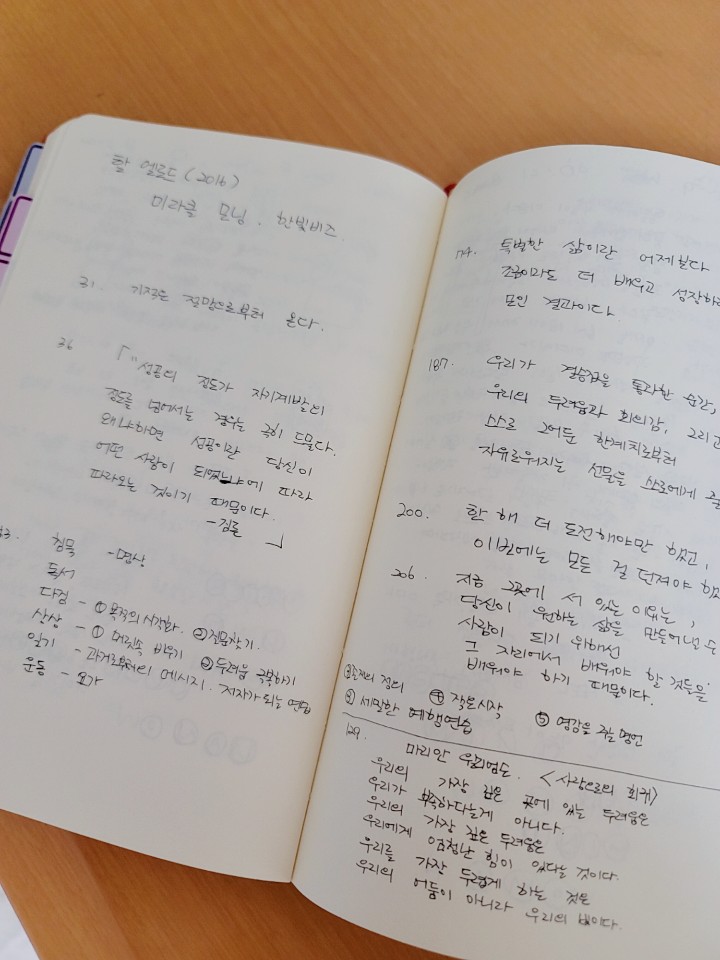 할 엘로드 (2016)
미라클 모닝. 한빛비즈.
31. 기적은 절망으로부터 온다.
36 「"성공의 정도가 자기계발의
정도를 넘어서는 경우는 극히 드물다.
왜냐하면 성공이란 당신이
어떤 사람이 되었느냐에 따라
따라오는 것이기 때문이다.
-짐론 」
침묵 - 명상
독서
다짐 - ① 목적의 시각화. ② 질문찾기.
상상 - ① 머릿속 비우기 ② 두려움 극복하기
일기 - 과거로부터의 메시지. 저자가 되는 연습
운동 - 요가
174. 특별한 삶이란 어제보다
조금이라도 더 배우고 성장하려
모인 결과이다.
187. 우리가 결승점을 통과한 순간,
우리의 두려움과 회의감, 그리고
스스로 그어둔 한계치로부터
자유로워지는 선물을 스스로에게 줄
200. 한 해 더 도전해야만 했고,
이번에는 모든 걸 던져야 했
206. 지금 그곳에 서 있는 이유는,
당신이 원하는 삶을 만들어낸 수
사람이 되기 위해선
그 자리에서 배워야 할 것들을
배워야 하기 때문이다.
정리 ④ 작은시작 ⑤ 영감을 주는 명언
세밀한 예행연습
129.
마리안 윌리엄슨. <사랑으로의 회귀>
우리의 가장 깊은 곳에 있는 두려움은
우리가 부족하다는게 아니다.
우리의 가장 깊은 두려움은
우리에게 엄청난 힘이 있다는 것이다.
우리를 가장 두렵게 하는 것은
우리의 어둠이 아니라 우리의 빛이다.